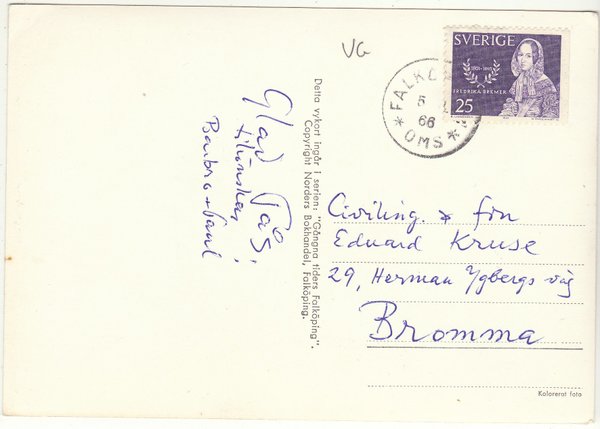 VG
SVERIGE
1801-1865
FREDRIKA BREMER
25
FALKÖ
5
66
OMS
Glad Påsk,
tillönskar
Barbro + Paul
Detta vykort ingår i serien: "Gångna tiders Falköping".
Copyright Norders Bokhandel, Falköping.
Civiling. * fru
Eduard Kruse
29, Herman Ygbergs väg
Bromma
Kolorerat foto